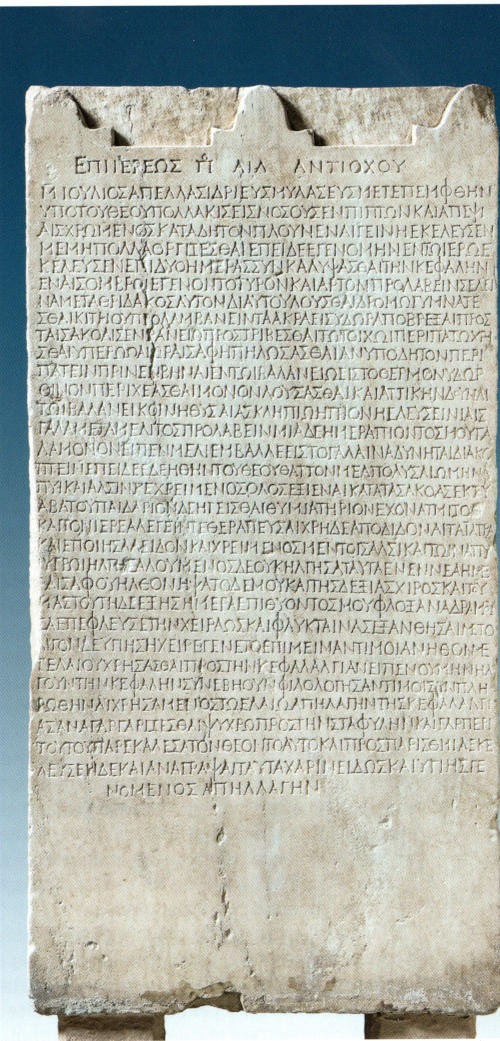 ΕΠΙ ΙΕΡΕΩΣ Π ΑΙΛ ΑΝΤΙΟΧΟΥ
ΜΙΟΥΛΙΟΣΑΠΕΛΛΑΣΙΔΡΙΕΥΣΜΥΛΑΣΕΥΣΜΕΤΕΠΕΜΦΘΗΝ
ΥΠΟΤΟΥΘΕΟΥΠΟΛΛΑΚΙΣΕΙΣΝΟΣΟΥΣΕΝΠΙΠΤΩΝΚΑΙΑΠΕΨΙ
ΑΙΣΧΡΩΜΕΝΟΣΚΑΤΑΔΗΤΟΝΠΛΟΥΝΕΝΑΙΓΕΙΝΗΕΚΕΛΕΥΣΕΝ
ΜΕΜΗΠΟΛΛΑΟΡΓΙΖΕΣΘΑΙΕΠΕΙΔΕΕΓΕΝΟΜΗΝΕΝΤΩΙΕΡΩΕ
ΚΕΛΕΥΣΕΝΕΠΙΔΥΟΗΜΕΡΑΣΣΥΝΚΑΛΥΨΑΣΘΑΙΤΗΝΚΕΦΑΛΗΝ
ΕΝΑΙΣΟΜΒΡΟΙΕΓΕΝΟΝΤΟΤΥΡΟΝΚΑΙΑΡΤΟΝΠΡΟΛΑΒΕΙΝΣΕΛΕΙ
ΝΑΜΕΤΑΘΡΙΔΑΚΟΣΑΥΤΟΝΔΙΑΥΤΟΥΛΟΥΣΘΑΙΔΡΟΜΩΓΥΜΝΑΖΕ
ΣΘΑΙΚΙΤΡΙΟΥΠΡΟΛΑΜΒΑΝΕΙΝΤΑΑΚΡΑΕΙΣΥΔΩΡΑΠΟΒΡΕΞΑΙΠΡΟΣ
ΤΑΙΣΑΚΟΑΙΣΕΝΒΑΛΑΝΕΙΩΠΡΟΣΤΡΙΒΕΣΘΑΙΤΩΤΟΙΧΩΙΠΕΡΙΠΑΤΩΧΡΗ
ΣΘΑΙΥΠΕΡΩΩΑΙΩΡΑΙΣΑΦΗΠΗΛΩΣΑΣΘΑΙΑΝΥΠΟΔΗΤΟΝΠΕΡΙ
ΠΑΤΕΙΝΠΡΙΝΕΝΒΗΝΑΙΕΝΤΩΙΒΑΛΑΝΕΙΩΙΕΙΣΤΟΘΕΡΜΟΝΥΔΩΡ
ΟΙΝΟΝΠΕΡΙΧΕΑΣΘΑΙΜΟΝΟΝΛΟΥΣΑΣΘΑΙΚΑΙΑΤΤΙΚΗΝΔΟΥΝΑΙ
ΤΩΙΒΑΛΑΝΕΙΚΟΙΝΗΘΥΣΑΙΑΣΚΛΗΠΙΩΗΠΙΟΝΗΕΛΕΥΣΕΙΝΙΑΙΣ
ΓΑΛΑΜΕΤΑΜΕΛΙΤΟΣΠΡΟΛΑΒΕΙΝΜΙΑΔΕΗΜΕΡΑΠΙΟΝΤΟΣΜΟΥΓΑ
ΛΑΜΟΝΟΝΕΙΠΕΝΜΕΛΙΕΜΒΑΛΛΕΕΙΣΤΟΓΑΛΑΙΝΑΔΥΝΗΤΑΙΔΙΑΚΟ
ΠΤΕΙΝΕΠΕΙΔΕΕΔΕΗΘΗΝΤΟΥΘΕΟΥΘΑΤΤΟΝΜΕΑΠΟΛΥΣΑΙΩΜΗΝΑ
ΠΥΙΚΑΙΑΛΣΙΝΚΕΧΡΕΙΜΕΝΟΣΟΛΟΣΕΞΙΕΝΑΙΚΑΤΑΤΑΣΑΚΟΑΣΕΚΤΟΥ
ΑΒΑΤΟΥΠΑΙΔΑΡΙΟΝΔΕΗΓΕΙΣΘΑΙΘΥΜΙΑΤΗΡΙΟΝΕΧΟΝΑΤΜΙΖΟΝ
ΤΑΚΑΙΤΟΝΙΕΡΕΑΛΕΓΕΙΝΤΕΘΕΡΑΠΕΥΣΑΙΧΡΗΔΕΑΠΟΔΙΔΟΝΑΙΤΑΙΑΤΡΑ
ΚΑΙΕΠΟΙΗΣΑΑΕΙΔΟΝΚΑΙΧΡΕΙΜΕΝΟΣΜΕΝΤΟΙΣΑΛΣΙΚΑΙΤΩΙΝΑΠΥ
ΙΥΓΡΩΙΗΛΓΗΣΑΛΟΥΜΕΝΟΣΔΕΟΥΚΗΛΓΗΣΑΤΑΥΤΑΕΝΕΝΝΕΑΗΜΕ
ΡΑΙΣΑΦΟΥΗΛΘΟΝΗΨΑΤΟΔΕΜΟΥΚΑΙΤΗΣΔΕΞΙΑΣΧΙΡΟΣΚΑΙΤΟΥ
ΜΑΣΤΟΥΤΗΔΕΕΞΗΣΗΜΕΡΑΕΠΙΘΥΟΝΤΟΣΜΟΥΦΛΟΞΑΝΑΔΡΑΜΟΥ
ΣΑΕΠΕΦΛΕΥΣΕΤΗΝΧΕΙΡΑΩΣΚΑΙΦΛΥΚΤΑΙΝΑΣΕΞΑΝΘΗΣΑΙΜΕΤΟ
ΛΙΓΟΝΔΕΥΓΙΗΣΗΧΕΙΡΕΓΕΝΕΤΟΕΠΙΜΕΙΝΑΝΤΙΜΟΙΑΝΗΘΟΝΜΕ
ΤΕΛΑΙΟΥΧΡΗΣΑΣΘΑΙΠΡΟΣΤΗΝΚΕΦΑΛΑΛΓΙΑΝΕΙΠΕΝΟΥΜΗΝΗΛ
ΓΟΥΝΤΗΝΚΕΦΑΛΗΝΣΥΝΕΒΗΟΥΝΦΙΛΟΛΟΓΗΣΑΝΤΙΜΟΙΣΥΝΠΛΗ
ΡΩΘΗΝΑΙΧΡΗΣΑΜΕΝΟΣΤΩΕΛΑΙΩΑΠΗΛΑΓΗΝΤΗΣΚΕΦΑΛΑΛΓΙ
ΑΣΑΝΑΓΑΡΓΑΡΙΖΕΣΘΑΙΨΥΧΡΩΠΡΟΣΤΗΝΣΤΑΦΥΛΗΝΚΑΙΓΑΡΠΕΡΙ
ΤΟΥΤΟΥΠΑΡΕΚΑΛΕΣΑΤΟΝΘΕΟΝΤΟΑΥΤΟΚΑΙΠΡΟΣΠΑΡΙΣΘΜΙΑΕΚΕ
ΛΕΥΣΕΝΔΕΚΑΙΑΝΑΓΡΑΨΑΙΤΑΥΤΑΧΑΡΙΝΕΙΔΩΣΚΑΙΥΓΙΗΣΓΕ
ΝΟΜΕΝΟΣΑΠΗΛΛΑΓΗΝ